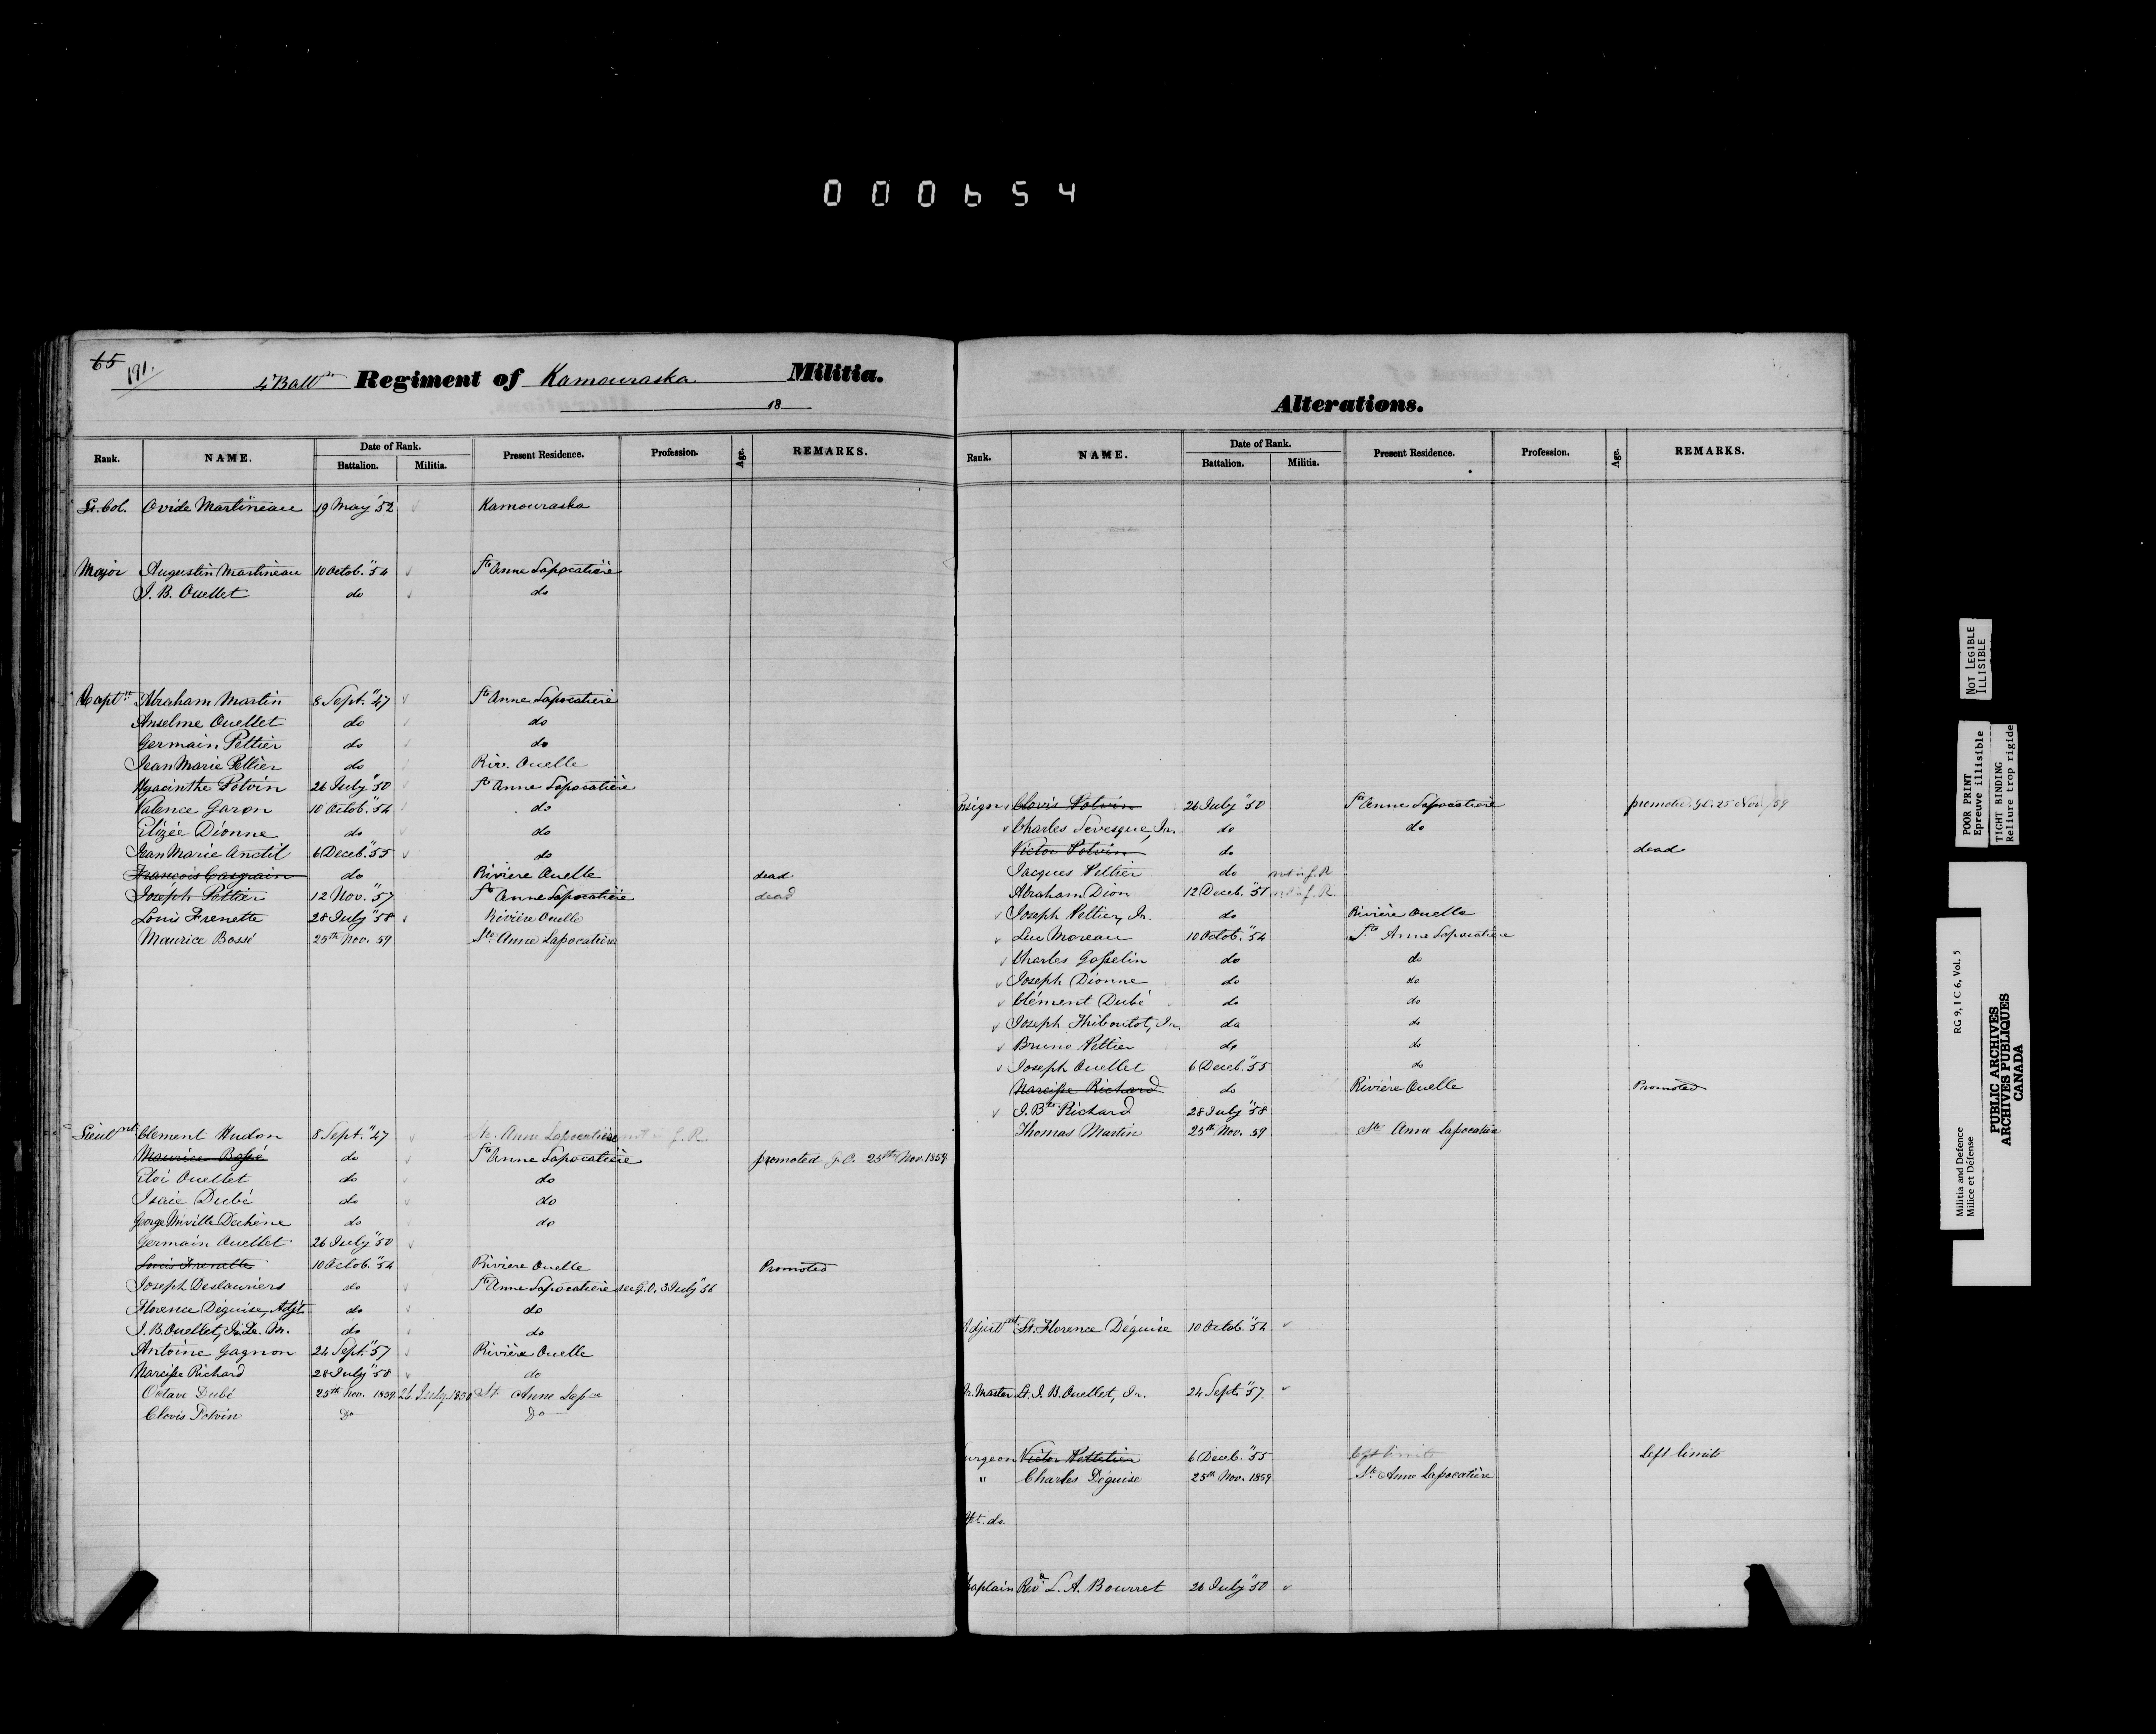 000654
65
191.
4 Battn Regiment of Kamouraska Militia.
18
Rank. NAME. Date of Rank. Present Residence. Profession. Age. REMARKS.
Battalion. Militia.
Lt. Col. Ovide Martineau 19 May "52 Kamouraska
Major Augustin Martineau 10 Octob. "54 Ste Anne Lapocatière
J. B. Ouellet do do
Captn Abraham Martin 8 Sept. "47 Ste Anne Lapocatière
Anselme Ouellet do do
Germain Peltier do do
Jean Marie Peltier do Riv. Ouelle
Hyacinthe Potvin 26 July "50 Ste Anne Lapocatière
Valence Garon 10 Octob. "54 do
Elizée Dionne do do
Jean Marie Anctil 6 Decb. "55 do
Francois Casgrain do Rivière Ouelle dead
Joseph Peltier 12 Nov. "57 Ste Anne Lapocatière dead
Louis Frenette 28 July "58 Rivière Ouelle
Maurice Bossé 25th Nov. 59 Ste Anne Lapocatière
Lieutnt Clement Hudon 8 Sept. "47 Ste. Anne Lapocatière not in f. R.
Maurice Bossé do Ste Anne Lapocatière promoted G.O. 25th Nov. 1859
Eloi Ouellet do do
Isaïe Dubé do do
George Miville Dechène do do
Germain Ouellet 26 July "50
Louis Frenette 10 Octob. "54 Rivière Ouelle Promoted
Joseph Deslauriers do Ste Anne Lapocatière see G.O. 3 July "56
Florence Déguise, Adjt. do do
J. B. Ouellet, Jr. Qr. Mr. do do
Antoine Gagnon 24 Sept. "57 Rivière Ouelle
Narcisse Richard 28 July "58 do
Octave Dubé 25th Nov. 1859 26 July 1850 St Anne Lapce
Clovis Potvin Do Do
Alterations.
Rank. NAME. Date of Rank. Present Residence. Profession. Age. REMARKS.
Battalion. Militia.
nsign Clovis Potvin 26 July "50 Ste Anne Lapocatière promoted G.O. 25 Nov./59
Charles Levesque, Jr. do do
Victor Potvin do dead
Jacques Peltier do not in f. R
Abraham Dion 12 Decb. "51 not in f. R.
Joseph Peltier, Jr. do Rivière Ouelle
Luc Moreau 10 Octob. "54 Ste Anne Lapocatière
Charles Gosselin do do
Joseph Dionne do do
Clément Dubé do do
Joseph Thiboutot, Jr. do do
Bruno Peltier do do
Joseph Ouellet 6 Decb. "55 do
Narcisse Richard do Rivière Ouelle Promoted
J. Bte Richard 28 July "58
Thomas Martin 25th Nov. 59 Ste Anne Lapocatière
Adjutnt Lt. Florence Déguise 10 Octob. "54
r. Master Lt. J. B. Ouellet, Jr. 24 Sept. "57
urgeon Victor Pelletier 6 Decb. "55 left limits Left limits
" Charles Déguise 25th Nov. 1859 St. Anne Lapocatière
st. do.
haplain Revd L. A. Bourret 26 July "50
NOT LEGIBLE
ILLISIBLE
POOR PRINT
Epreuve illisible
TIGHT BINDING
Reliure trop rigide
Militia and Defence RG 9, I C 6, Vol. 5
Milice et Défense
PUBLIC ARCHIVES
ARCHIVES PUBLIQUES
CANADA